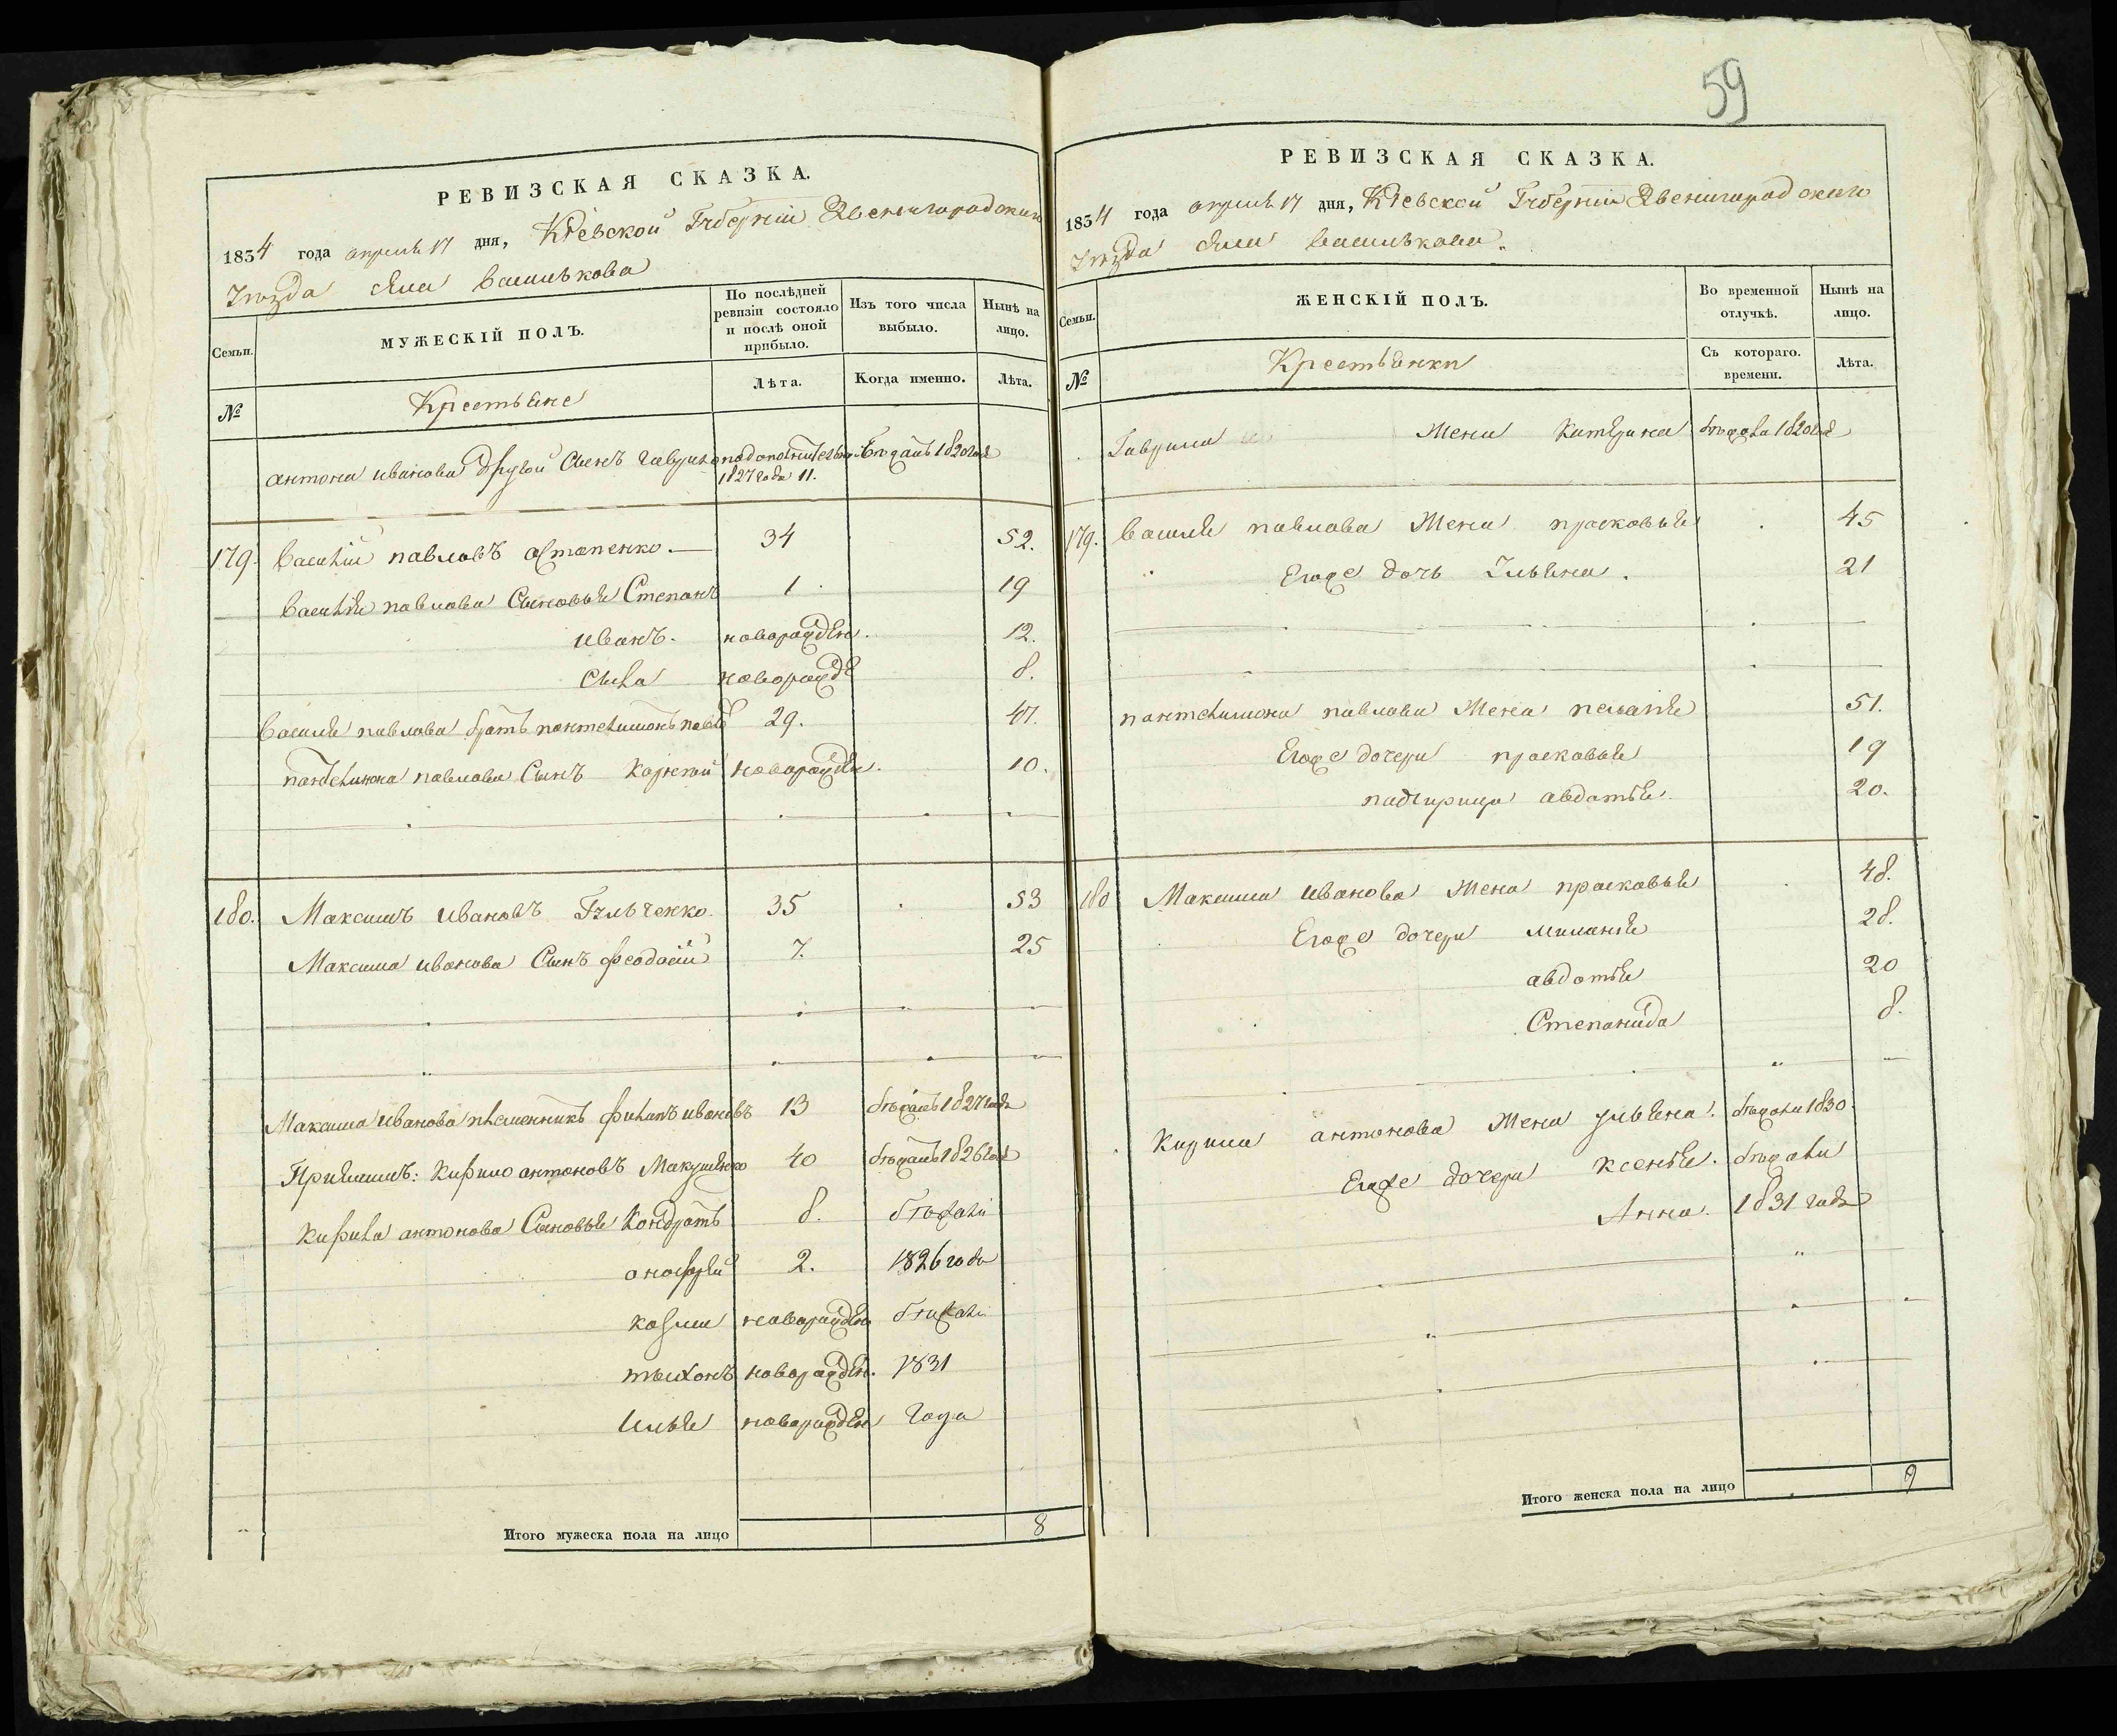 59
РЕВИЗСКАЯ СКАЗКА.
1834 года апреля 17 дня, Кіевской Губерніи Звенигородскаго
уѣзда села Василькова
Семьи.
МУЖЕСКІЙ ПОЛЪ.
По послѣдней ревизіи состояло и послѣ оной прибыло.
Изъ того числа выбыло.
Нынѣ на лицо.
№
Крестьяне
Лѣта.
Когда именно.
Лѣта.
антона иванова другой Сынъ гаврило подополнительной бѣжалъ 1820 года
1827 года 11.
179. василій павловъ остапенко. 34 52.
василія павлова Сыновья Степанъ 1 19
иванъ. новорожден. 12.
Сила новорожде 8.
василія павлова братъ пантелимонъ павло 29. 47.
пантелимона павлова Сынъ Карпъ новорожден. 10.
180. Максимъ ивановъ 35 53
Максима иванова Сынъ феодосій 7. 25
Максима иванова племенникъ филипъ ивановъ 13 бѣжалъ 1827 года
Приемышъ: Кирило антоновъ 40 бѣжалъ 1826 года
Кирила антонова Сыновья Кондратъ 8. бѣжали
онофрей 2. 1826 года
козма новорожден бѣжали
тихонъ новорожден. 1831
илья новорожден года
Итого мужеска пола на лицо 8
РЕВИЗСКАЯ СКАЗКА.
1834 года апреля 17 дня, Кіевской Губерніи Звенигородскаго
уѣзда села Василькова.
Семьи.
ЖЕНСКІЙ ПОЛЪ.
Во временной отлучкѣ.
Нынѣ на лицо.
№
Крестьянки
Съ котораго. времени.
Лѣта.
Гаврила Жена Катерина бѣжала 1820 года
179. василія павлова Жена прасковья 45
Егоже дочь Ульяна. 21
пантелимона павлова Жена пелагія 51.
Егоже дочери прасковья 19
падчирица авдотья. 20.
180 Максима иванова Жена прасковья 48.
Егоже дочери миланья 28.
авдотья 20
Степанида 8.
Кирила антонова Жена ульяна. бѣжала 1830.
Егоже дочери Ксенья. бѣжали
Анна. 1831 года
Итого женска пола на лицо 9